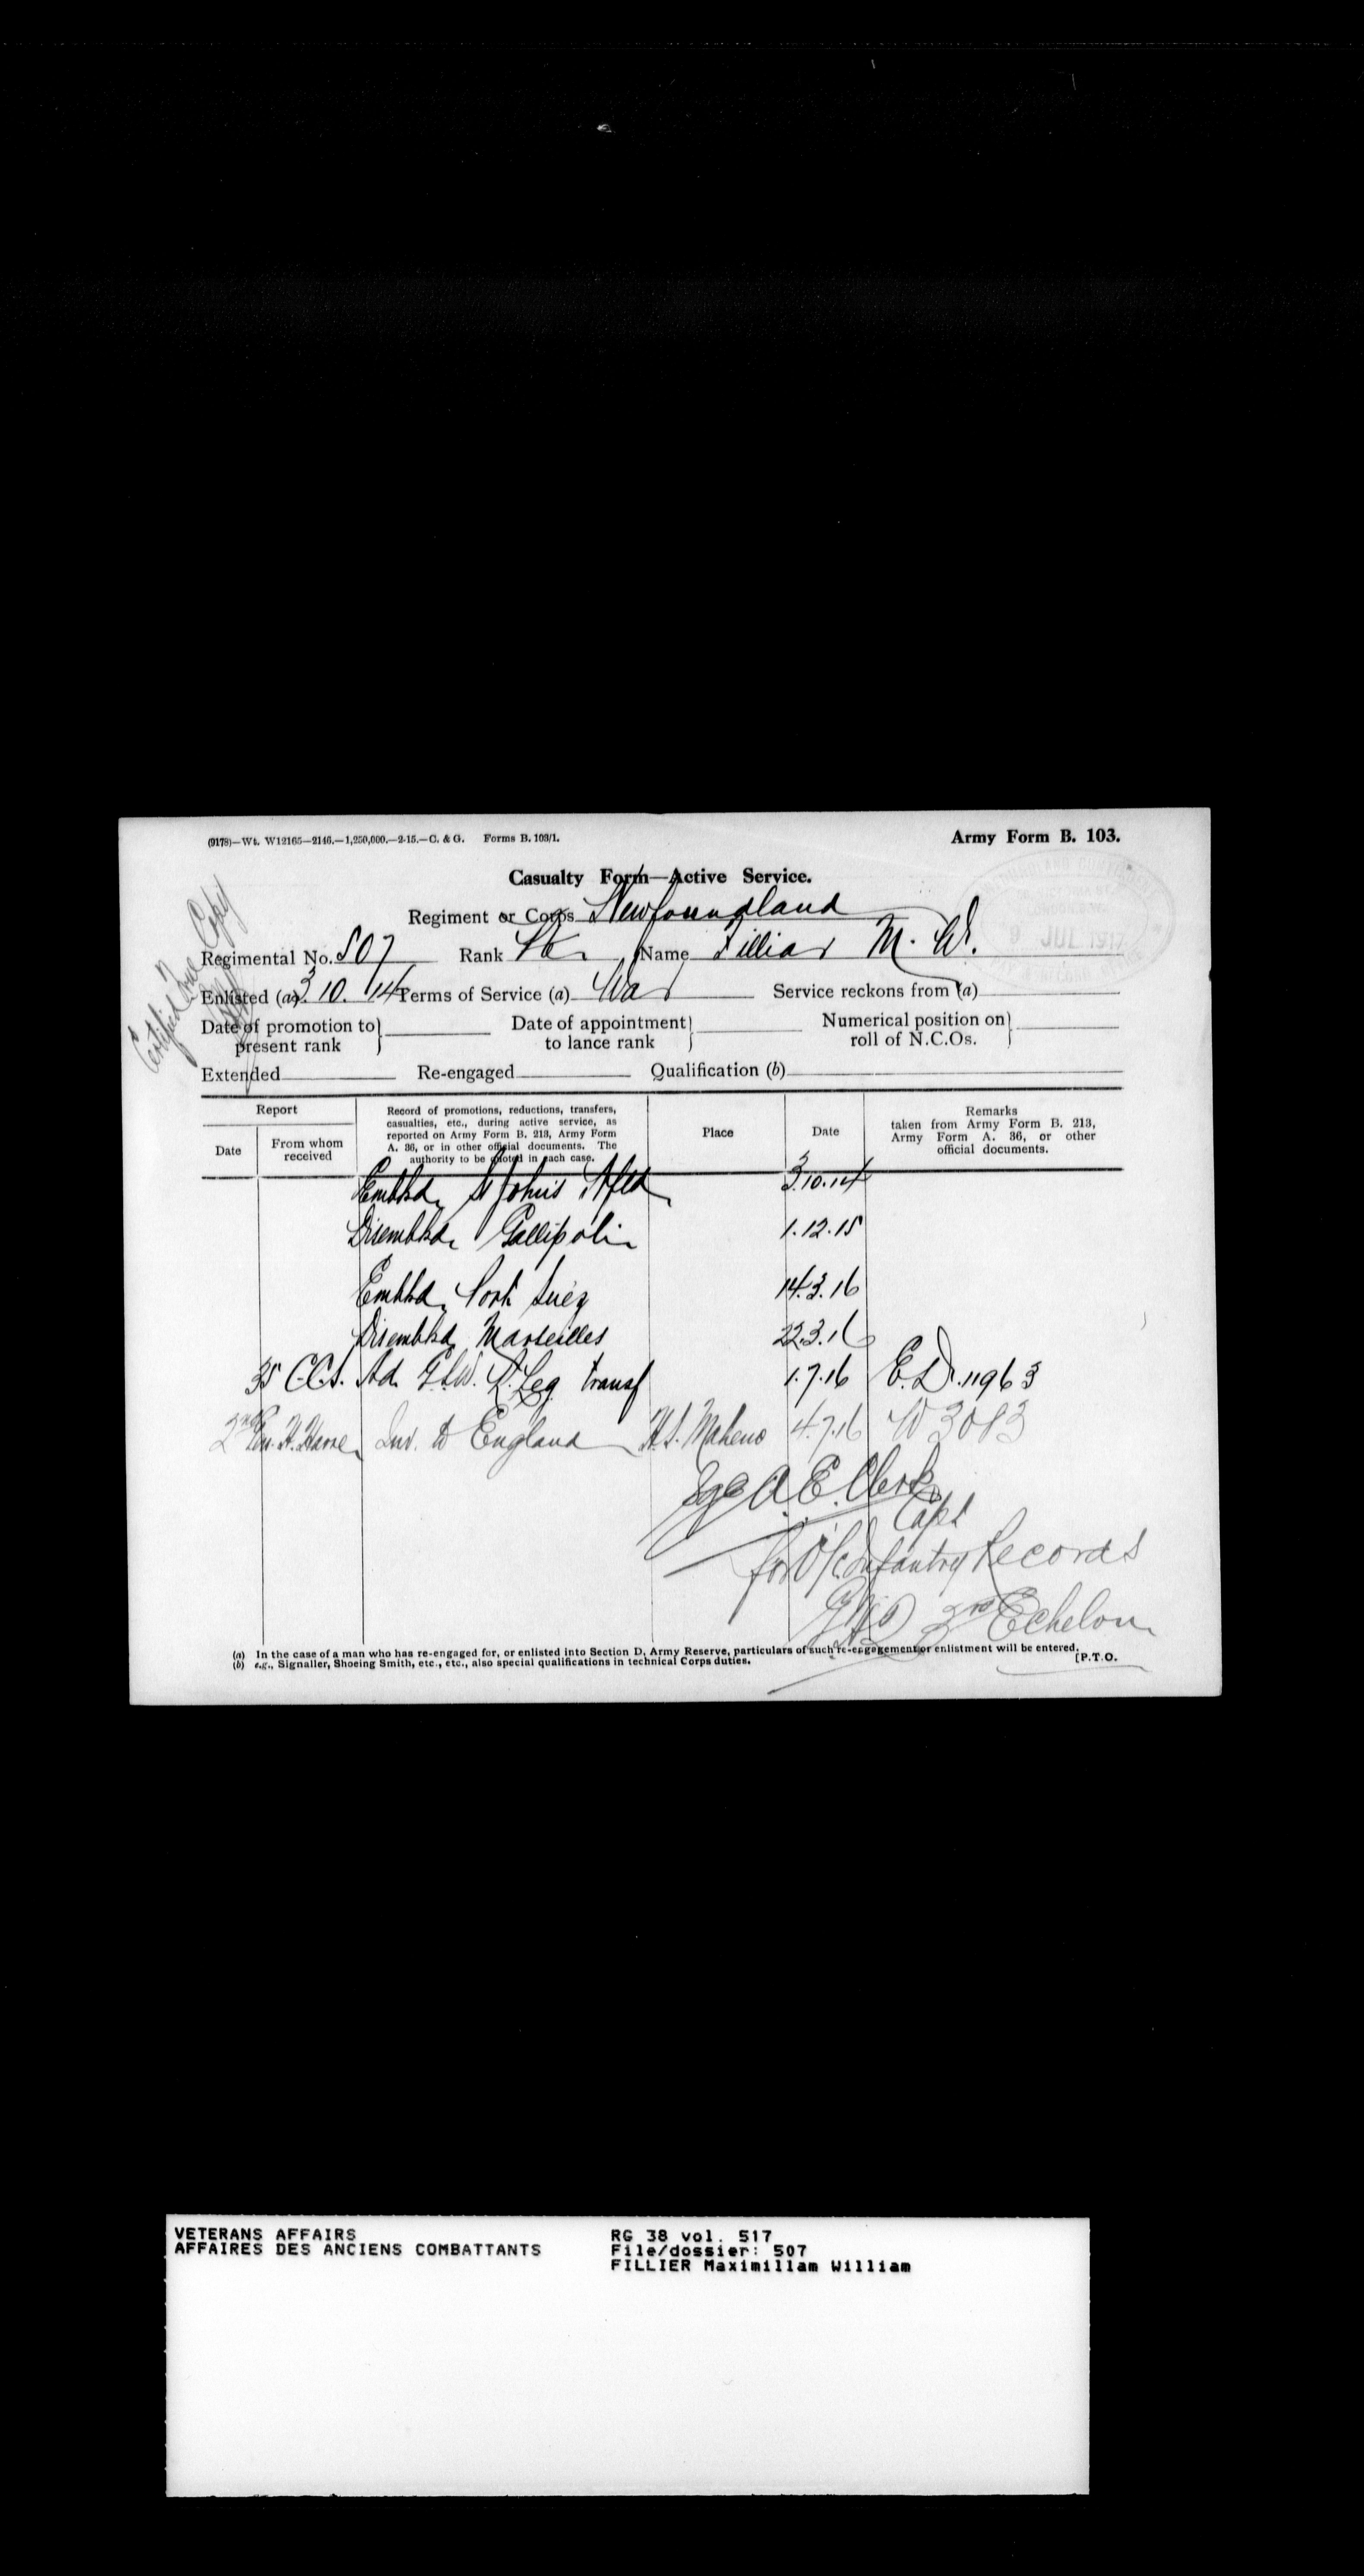 (9178)—Wt. W12165—2146.—1,250,000.—2-15.—C. & G. Forms B. 103/1. Army Form B. 103.
Certified True Copy
Casualty Form—Active Service.
Regiment or Corps Newfoundland
Regimental No. 507 Rank Pte Name Fillier M. W.
9 JUL 1917
Enlisted (a) 3.10.14 Terms of Service (a) War Service reckons from (a)
Date of promotion to present rank } Date of appointment to lance rank } Numerical position on roll of N.C.Os. }
Extended Re-engaged Qualification (b)
Report
Date
From whom received
Record of promotions, reductions, transfers,
casualties, etc., during active service, as
reported on Army Form B. 213, Army Form
A. 36, or in other official documents. The
authority to be quoted in each case.
Place
Date
Remarks
taken from Army Form B. 213,
Army Form A. 36, or other
official documents.
Embkd. St Johns Nfld 3.10.14
Disembkd. Gallipoli 1.12.15
Embkd. Port Suez 14.3.16
Disembkd. Marseilles 22.3.16
35 C.C.S. Ad. G.S.W. R. Leg transf 1.7.16 E.D. 11963
Inv. to England H.S. Maheno 4.7.16 W 3083
Sgd A. E. Clerk
Capt
for O/c Infantry Records
GHQ 3rd Echelon
(a) In the case of a man who has re-engaged for, or enlisted into Section D, Army Reserve, particulars of such re-engagement or enlistment will be entered.
(b) e.g., Signaller, Shoeing Smith, etc., etc., also special qualifications in technical Corps duties. [P.T.O.
VETERANS AFFAIRS RG 38 vol. 517
AFFAIRES DES ANCIENS COMBATTANTS File/dossier: 507
FILLIER Maximillam William